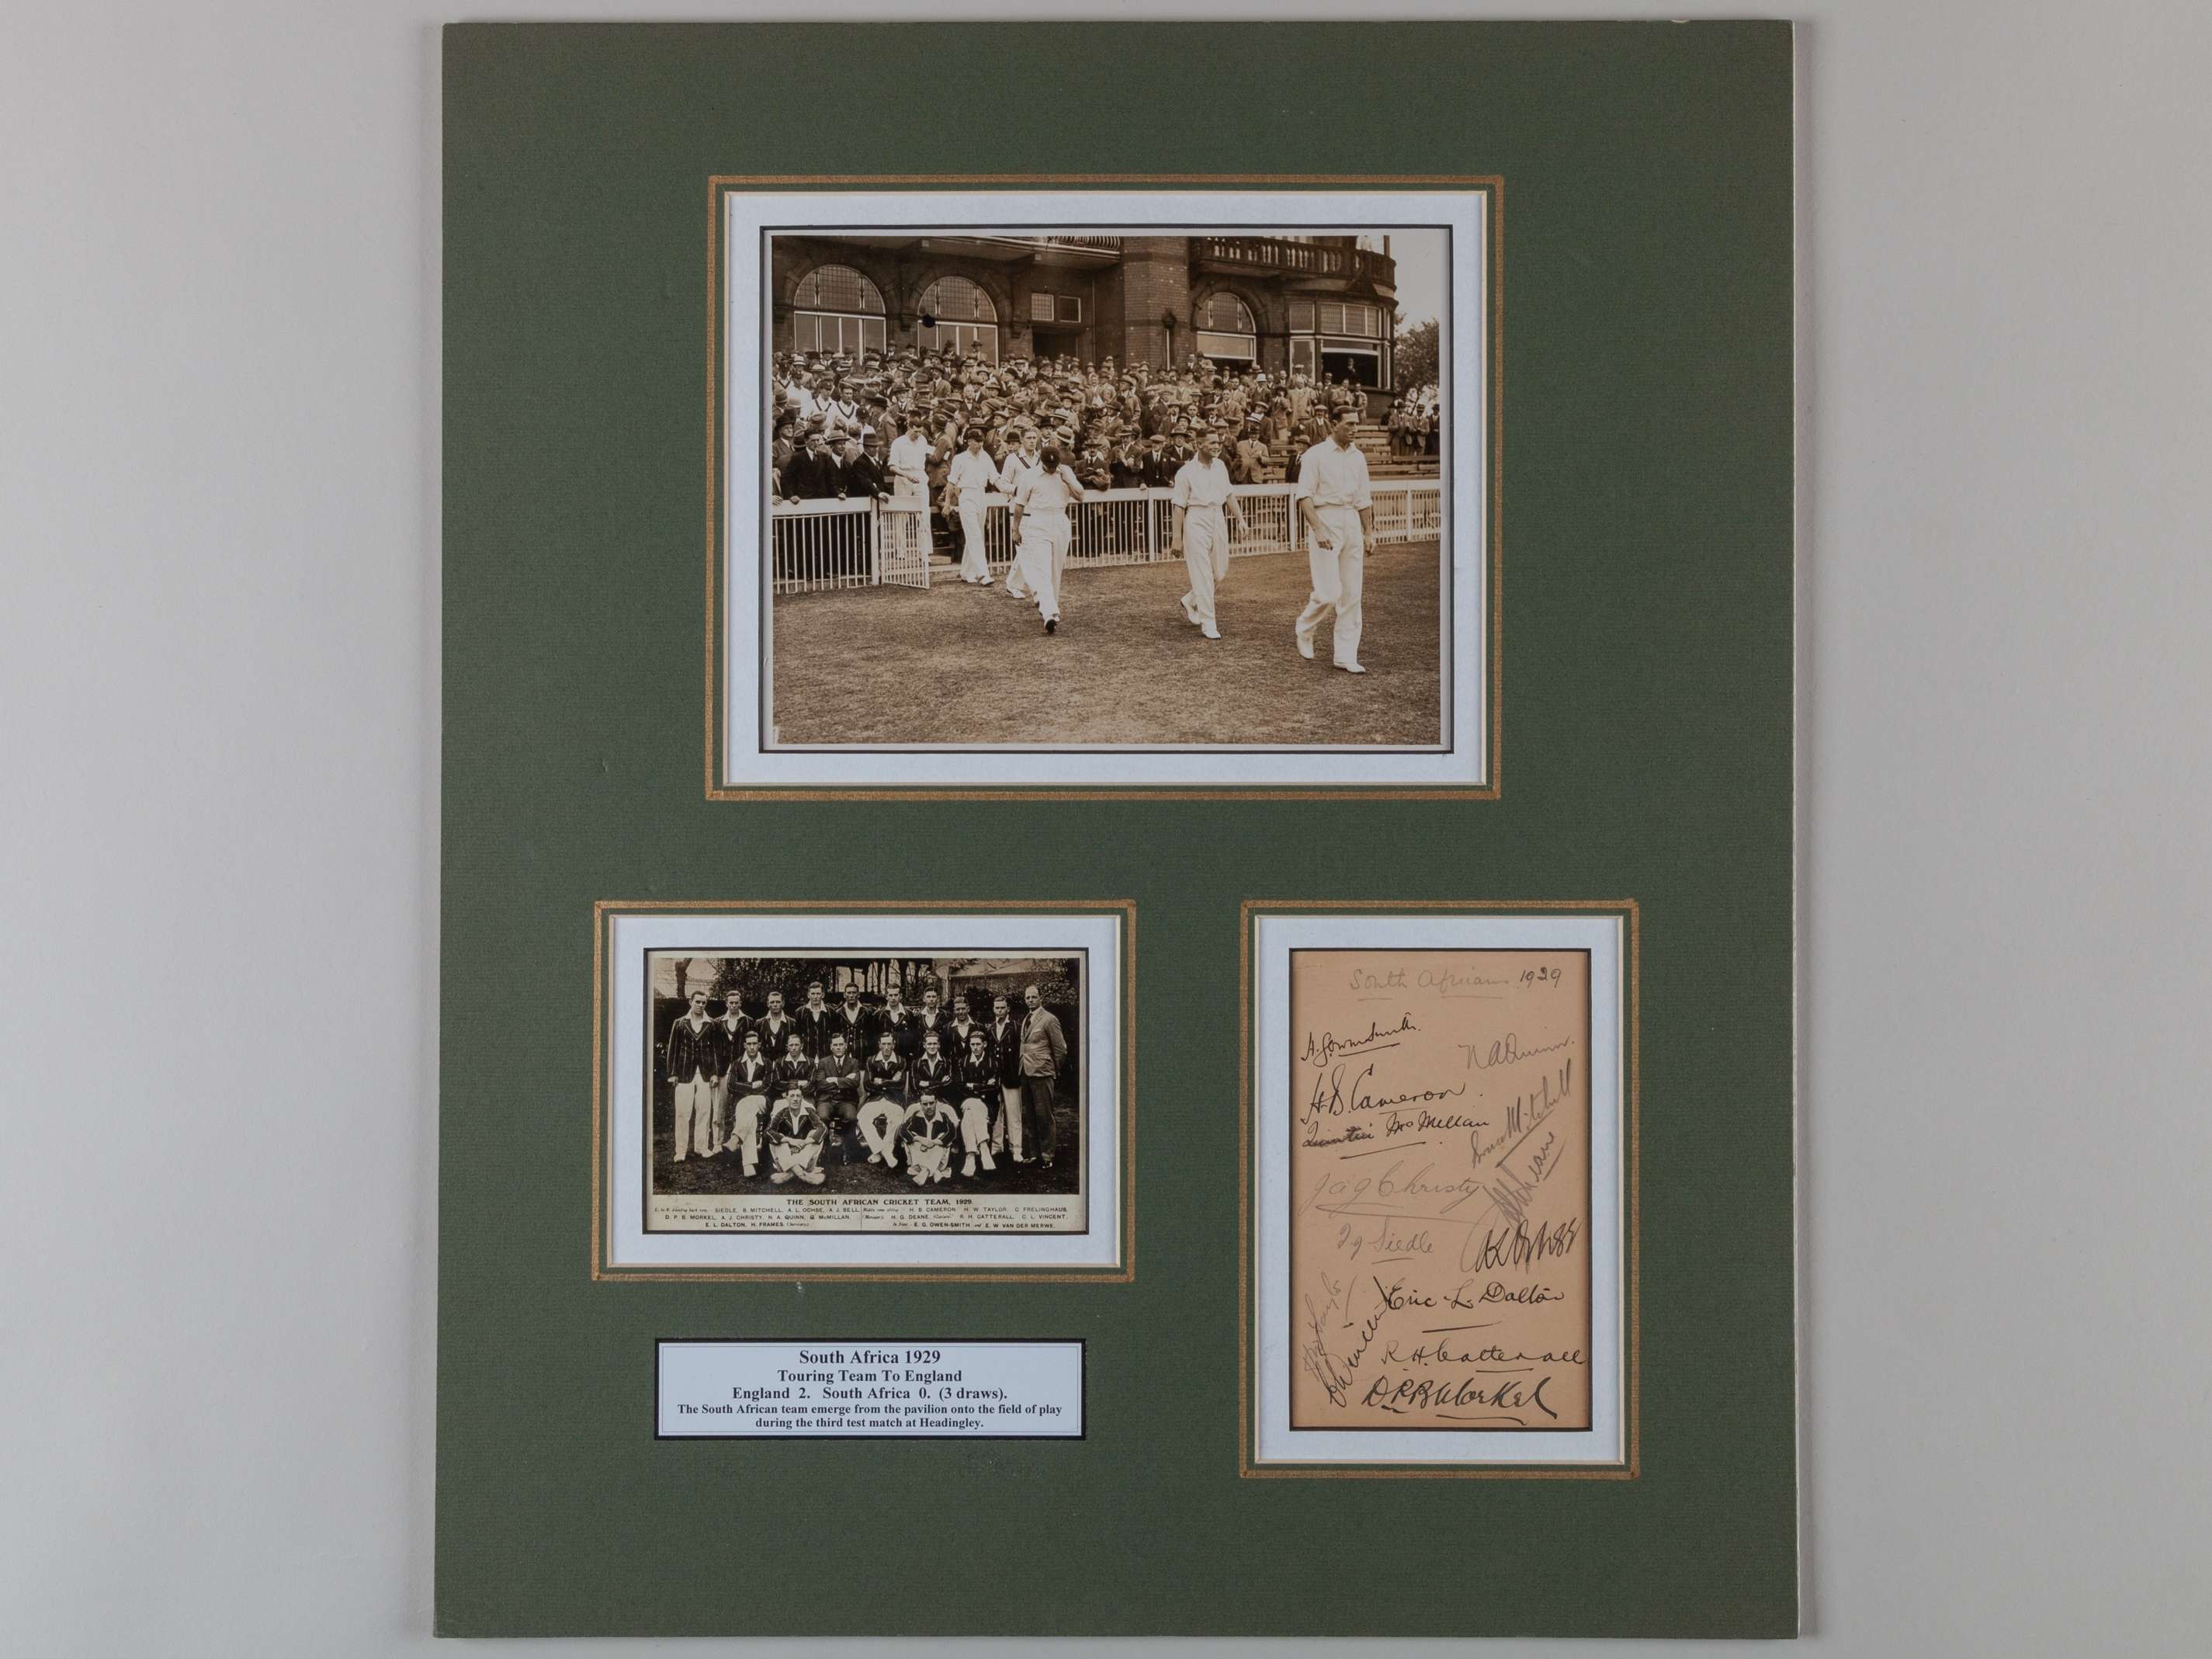 THE SOUTH AFRICAN CRICKET TEAM, 1929.
SIEDLE, B. MITCHELL, A. L. OCHSE, A. J. BELL,
D. P. B. MORKEL, A. J. CHRISTY, N. A. QUINN, Q. McMILLAN,
E. L. DALTON, H. FRAMES,
H. B. CAMERON, H. W. TAYLOR, C. FRELINGHAUS,
H. G. DEANE, R. H. CATTERALL, C. L. VINCENT,
E. G. OWEN-SMITH and E. W. VAN DER MERWE.
South Africa 1929
Touring Team To England
England 2. South Africa 0. (3 draws).
The South African team emerge from the pavilion onto the field of play
during the third test match at Headingley.
South Africans 1929
H. G. Owen Smith
N A Quinn.
H. B. Cameron
Quintin McMillan
Bruce Mitchell
J A J Christy
I J Siedle
Eric L. Dalton
R. H. Catterall
D. P. B Morkel